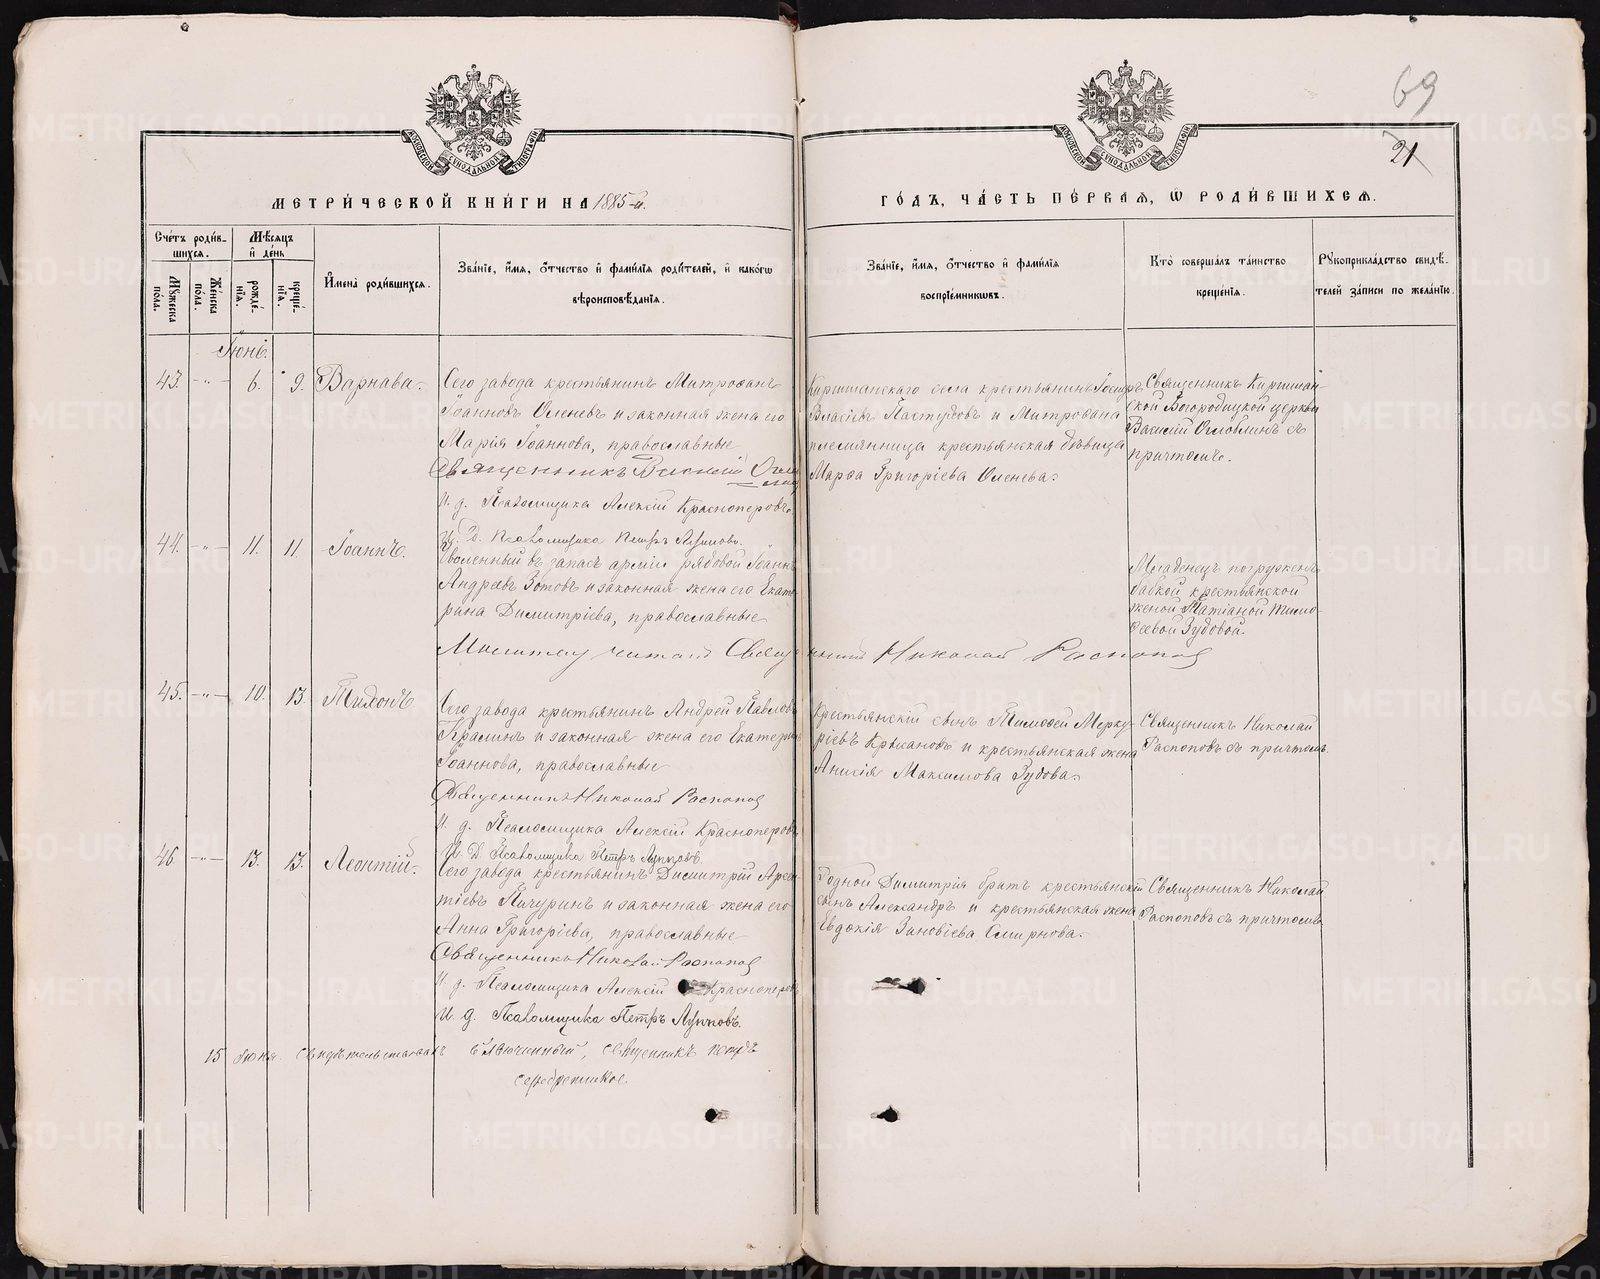 69
21
МОСКОВСКОЙ СѴНОДАЛЬНОЙ ТИПОГРАФІИ
МОСКОВСКОЙ СѴНОДАЛЬНОЙ ТИПОГРАФІИ
МЕТРИ́ЧЕСКОЙ КНИ́ГИ НА 1885-й.
ГО́ДЪ, ЧА́СТЬ ПЕ́РВАЯ, Ѡ РОДИ́ВШИХСЯ.
Сче́тъ роди́в-
шихся.
Мꙋ́жеска по́ла.
Же́нска по́ла.
Мѣ́сяцъ
и҆ де́нь
рожде́-нїя.
креще́-нїя.
И҆мена̀ роди́вшихся.
Зва́нїе, и҆́мя, ѻ҆́тчество и҆ фами́лїя роди́телей, и҆ како́гѡ
вѣроисповѣ́данїя.
Зва́нїе, и҆́мя, ѻ҆́тчество и҆ фами́лїя
воспрїе́мникѡвъ.
Кто̀ соверша́лъ та́инство
креще́нїя.
Рꙋкоприкла́дство свидѣ́-
телей за́писи по жела́нїю.
Іюнь.
43. -"- 6. 9. Варнава.
Сего завода крестьянинъ Митрофанъ
Іоанновъ Оленевъ и законная жена его
Марія Іоаннова, православные
Священникъ Василій
И. д. Псаломщика Алексій Красноперовъ
Киргишанскаго села крестьянинъ
Власіевъ Пастуховъ и Митрофана
племянница крестьянская дѣвица
Марѳа Григоріева Оленева.
Священникъ Киргишан-
ской Богородицкой церкви
Василій Оглоблинъ съ
причтомъ.
44. -"- 11. 11. Іоаннъ.
И. Д. Псаломщика Петръ Луpповъ.
Уволенный въ запасъ арміи рядовой Іоаннъ
Андреевъ Зотовъ и законная жена его Екате-
рина Димитріева, православные
Младенецъ погруженъ
бабкой крестьянской
женой Татіаной Тимо-
ѳеевой Зудовой.
Молитву читалъ Священникъ Николай Распоповъ
45. -"- 10. 13. Тихонъ
Сего завода крестьянинъ Андрей Павловъ
и законная жена его Екатерина
Іоаннова, православные
Священникъ Николай Распоповъ
И. д. Псаломщика Алексій Красноперовъ
И. Д. Псаломщика Петръ Лупповъ.
Крестьянскій сынъ Тимоѳей Мерку-
ріевъ и крестьянская жена
Анисія Максимова Зудова.
Священникъ Николай
Распоповъ съ причтомъ.
46. -"- 13. 13. Леонтій.
Сего завода крестьянинъ Димитрій Арсен-
тіевъ Пичугинъ и законная жена его
Анна Григоріева, православные
Священникъ Николай Распоповъ
И. д. Псаломщика Алексій Красноперовъ
И. д. Псаломщика Петръ Лупповъ.
Родной Димитрія братъ крестьянскій
сынъ Александръ и крестьянская жена
Евдокія Зиновіева Смирнова.
Священникъ Николай
Распоповъ съ причтомъ
15 Июня свидѣтельствовалъ благочинный, священникъ Петръ